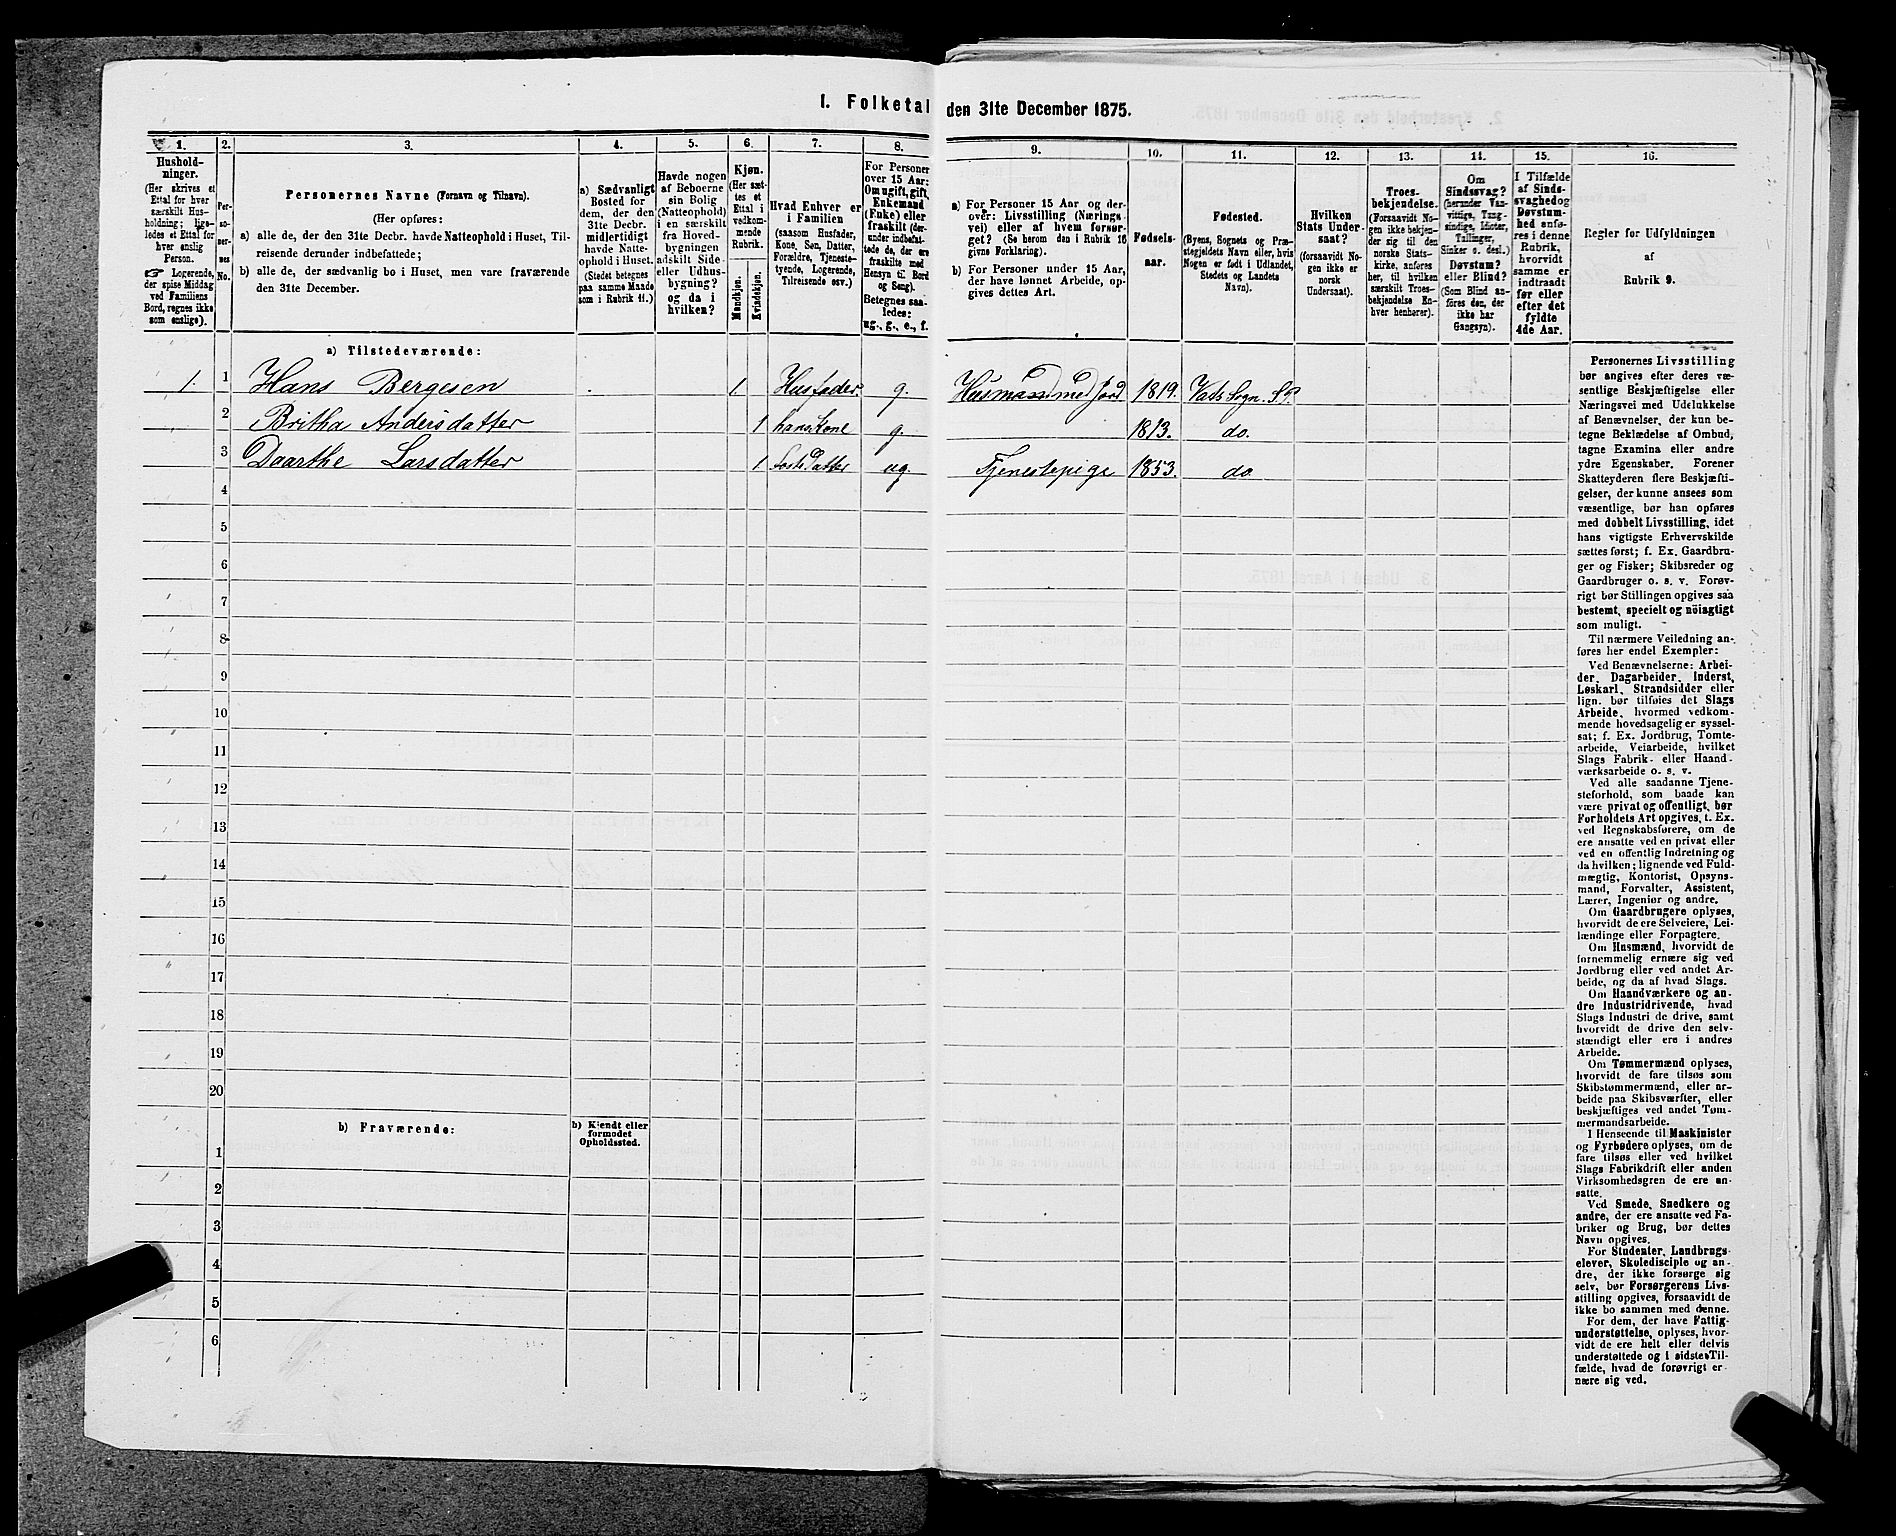 I. Folketal den 31te December 1875.
1.
Hushold-
ninger.
(Her skrives et
Ettal for hver
særskilt Hus-
holdning; lige-
ledes et Ettal for
hver enslig
Person.
☞ Logerende,
der spise Middag
ved Familiens
Bord, regnes ikke
som enslige).
2.
Per-
so-
ner-
nes
No.
3.
Personernes Navne (Fornavn og Tilnavn).
(Her opføres:
a) alle de, der den 31te Decbr. havde Natteophold i Huset, Til-
reisende derunder indbefattede;
b) alle de, der sædvanlig bo i Huset, men vare fraværende
den 31te December.
4.
a) Sædvanligt
Bosted for
dem, der den
31te Decbr.
midlertidigt
havde Natte-
ophold i Huset.
(Stedet betegnes
paa samme Maade
som i Rubrik 11.)
5.
Havde nogen
af Beboerne
sin Bolig
(Natteophold)
i en særskilt
fra Hoved-
bygningen
adskilt Side-
eller Udhus-
bygning?
og da i
hvilken?
6.
Kjøn.
(Her sæt-
tes et
Ettal i
vedkom-
mende
Rubrik.
Mandkjøn.
Kvindekjøn.
7.
Hvad Enhver er
i Familien
(saasom Husfader,
Kone, Søn, Datter,
Forældre, Tjeneste-
tyende, Logerende,
Tilreisende osv.)
8.
For Personer
over 15 Aar:
Om ugift, gift,
Enkemand
(Enke) eller
fraskilt (der-
under indbefat-
tede de, der ere
fraskilte med
Hensyn til Bord
og Seng).
Betegnes saa-
ledes:
ug., g., e., f.
9.
a) For Personer 15 Aar og der-
over: Livsstilling (Nærings-
vei) eller af hvem forsør-
get? (Se herom den i Rubrik 16
givne Forklaring).
b) For Personer under 15 Aar,
der have lønnet Arbeide, op-
gives dettes Art.
10.
Fødsels-
aar.
11.
Fødested.
(Byens, Sognets og Præ-
stegjeldets Navn eller, hvis
Nogen er født i Udlandet,
Stedets og Landets
Navn).
12.
Hvilken
Stats Under-
saat?
(forsaavidt No-
gen ikke er
norsk
Undersaat).
13.
Troes-
bekjendelse.
(Forsaavidt No-
gen ikke bekjen-
der sig til den
norske Stats-
kirke, anføres
her, til hvilken
særskilt Troes-
bekjendelse En-
hver henhører).
14.
Om
Sindssvag?
(herunder Van-
vittige, Tung-
sindige, Idioter,
Tullinger,
Sinker o. desl.)
Døvstum?
eller Blind?
(Som Blind an-
føres den, der
ikke har
Gangsyn).
15.
I Tilfælde
af Sinds-
svaghed og
Døvstum-
hed anfø-
res i denne
Rubrik,
hvorvidt
samme er
indtraadt
før eller
efter det
fyldte
4de Aar.
16.
Regler for Udfyldningen
af
Rubrik 9.
a) Tilstedeværende:
1. 1 Hans Bergesen 1. Husfader. g. Husmand med Jord 1819. Vats Sogn. S.P.
2 Britha Andersdatter 1 hans Kone g. 1813. do.
3 Daarthe Larsdatter 1 Datter ug. Tjenestepige 1853. do
4
5
6
7
8
9
10
11
12
13
14
15
16
17
18
19
20
b) Fraværende:
b) Kjendt eller
formodet
Opholdssted.
1
2
3
4
5
6
Personernes Livsstilling
bør angives efter deres væ-
sentlige Beskjæftigelse eller
Næringsvei med Udelukkelse
af Benævnelser, der kun be-
tegne Beklædelse af Ombud,
tagne Examina eller andre
ydre Egenskaber. Forener
Skatteyderen flere Beskjæfti-
gelser, der kunne ansees som
væsentlige, bør han opføres
med dobbelt Livsstilling, idet
hans vigtigste Erhvervskilde
sættes først; f. Ex. Gaardbru-
ger og Fisker; Skibsreder og
Gaardbruger o. s. v. Forøv-
rigt bør Stillingen opgives saa
bestemt, specielt og nöiagtigt
som muligt.
Til nærmere Veiledning an-
føres her endel Exempler:
Ved Benævnelserne: Arbei-
der, Dagarbeider, Inderst,
Løskarl, Strandsidder eller
lign. bør tilføies det Slags
Arbeide, hvormed vedkom-
mende hovedsagelig er syssel-
sat; f. Ex. Jordbrug, Tomte-
arbeide, Veiarbeide, hvilket
Slags Fabrik- eller Haand-
værksarbeide o. s. v.
Ved alle saadanne Tjene-
steforhold, som baade kan
være privat og offentligt, bør
Forholdets Art opgives, t. Ex.
ved Regnskabsførere, om de
ere ansatte ved en privat eller
ved en offentlig Indretning og
da hvilken; lignende ved Fuld-
mægtig, Kontorist, Opsyns-
mand, Forvalter, Assistent,
Lærer, Ingeniør og andre.
Om Gaardbrugere oplyses,
hvorvidt de ere Selveiere, Lei-
lændinge eller Forpagtere.
Om Husmænd, hvorvidt de
fornemmelig ernære sig ved
Jordbrug eller ved andet Ar-
beide, og da af hvad Slags.
Om Haandværkere og an-
dre Industridrivende, hvad
Slags Industri de drive, samt
hvorvidt de drive den selv-
stændigt eller ere i andres
Arbeide.
Om Tømmermænd oplyses,
hvorvidt de fare tilsøs som
Skibstømmermænd, eller ar-
beide paa Skibsværfter, eller
beskjæftiges ved andet Tøm-
mermandsarbeide.
I Henseende til Maskinister
og Fyrbødere oplyses, om de
fare tilsøs eller ved hvilket
Slags Fabrikdrift eller anden
Virksomhedsgren de ere an-
satte.
Ved Smede, Snedkere og
andre, der ere ansatte ved Fa-
briker og Brug, bør dettes
Navn opgives.
For Studenter, Landbrugs-
elever, Skoledisciple og an-
dre, der ikke forsørge sig
selv, bør Forsørgerens Livs-
stilling opgives, forsaavidt de
ikke bo sammen med denne.
For dem, der have Fattig-
understøttelse, oplyses, hvor-
vidt de ere helt eller delvis
understøttede og i sidste Til-
fælde, hvad de forøvrigt er-
nære sig ved.